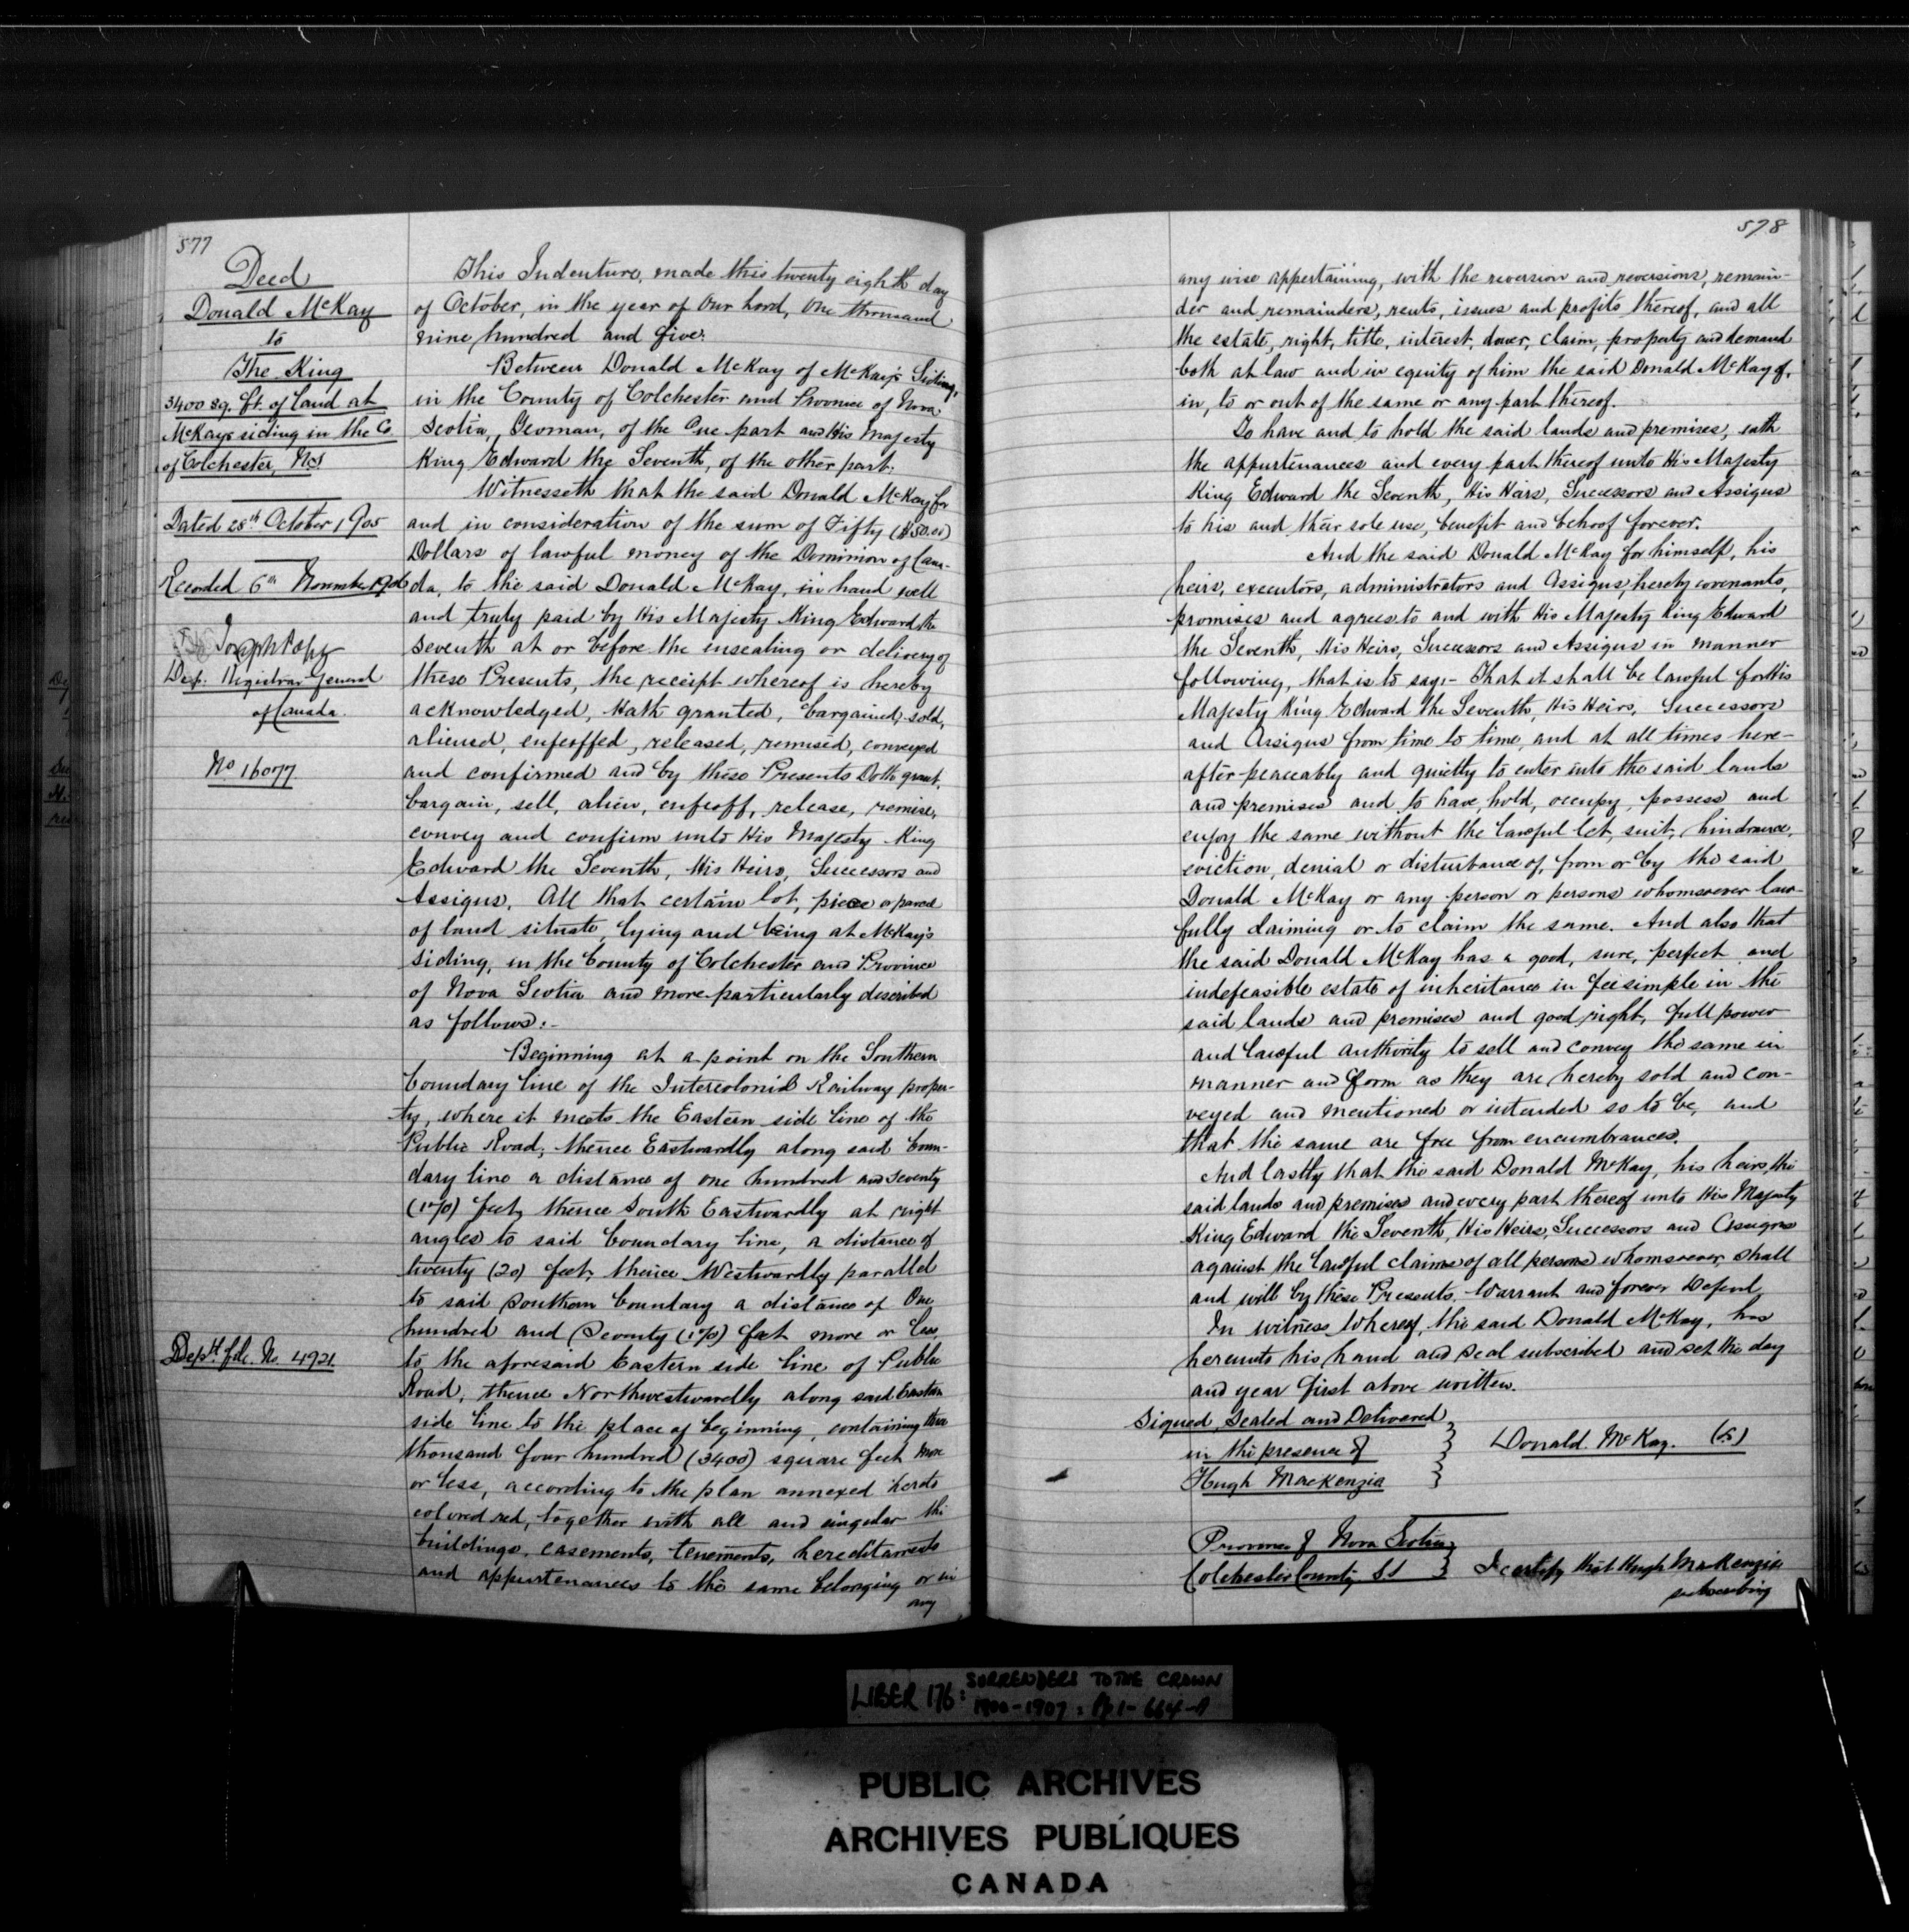 577
Deed
Donald McKay
to
The King
3400 sq. ft. of land at
McKays siding in the Co
of Colchester, N.S
Dated 28th October 1905
Recorded 6th November 1906
Joseph Pope
Dep: Registrar General
of Canada.
No 16077.
Dept file No. 4921.
This Indenture, made this twenty eighth day
of October, in the year of Our Lord, One thousand
nine hundred and five.
Between Donald McKay of McKay's Siding,
in the County of Colchester and Province of Nova
Scotia, Yeoman, of the One part and His Majesty
King Edward the Seventh, of the other part.
Witnesseth that the said Donald McKay for
and in consideration of the sum of Fifty ($50.00)
Dollars of lawful money of the Dominion of Cana-
da, to the said Donald McKay, in hand well
and truly paid by His Majesty King Edward the
Seventh at or before the ensealing or delivery of
these Presents, the receipt whereof is hereby
acknowledged, Hath granted, bargained, sold,
aliened, enfeoffed, released, remised, conveyed
and confirmed and by these Presents Doth grant,
bargain, sell, alien, enfeoff, release, remise,
convey and confirm unto His Majesty King
Edward the Seventh, His Heirs, Successors and
Assigns, All that certain lot, piece or parcel
of land situate, lying and being at McKay's
Siding, in the County of Colchester and Province
of Nova Scotia and more particularly described
as follows:-
Beginning at a point on the Southern
boundary line of the Intercolonial Railway proper-
ty, where it meets the Eastern side line of the
Public Road; thence Eastwardly along said boun-
dary line a distance of one hundred and seventy
(170) feet, thence South Eastwardly at right
angles to said boundary line, a distance of
twenty (20) feet; thence Westwardly parallel
to said Southern boundary a distance of One
hundred and Seventy (170) feet more or less,
to the aforesaid Eastern side line of Public
Road, thence Northwestwardly along said Eastern
side line to the place of beginning, containing three
thousand four hundred (3400) square feet more
or less, according to the plan annexed hereto
colored red, together with all and singular the
buildings, easements, tenements, hereditaments
and appurtenances to the same belonging or in
any
578
any wise appertaining, with the reversion and reversions, remain-
der and remainders, rents, issues and profits thereof, and all
the estate, right, title, interest, dower, claim, property and demand
both at law and in equity of him the said Donald McKay of,
in, to or out of the same or any part thereof.
To have and to hold the said lands and premises, with
the appurtenances and every part thereof unto His Majesty
King Edward the Seventh, His Heirs, Successors and Assigns
to his and their sole use, benefit and behoof forever.
And the said Donald McKay for himself, his
heirs, executors, administrators and Assigns, hereby covenants,
promises and agrees to and with His Majesty King Edward
the Seventh, His Heirs, Successors and Assigns in manner
following, that is to say:- That it shall be lawful for His
Majesty King Edward the Seventh, His Heirs, Successors
and Assigns from time to time, and at all times here-
after peaceably and quietly to enter into the said lands
and premises and to have, hold, occupy, possess and
enjoy the same without the lawful let, suit, hindrance,
eviction, denial or disturbance of, from or by the said
Donald McKay or any person or persons whomsoever law-
fully claiming or to claim the same. And also that
the said Donald McKay has a good, sure, perfect and
indefeasible estate of inheritance in fee simple in the
said lands and premises and good right, full power
and lawful authority to sell and convey the same in
manner and form as they are hereby sold and con-
veyed and mentioned or intended so to be, and
that the same are free from encumbrances.
And lastly that the said Donald McKay, his heirs, the
said lands and premises and every part thereof unto His Majesty
King Edward the Seventh, His Heirs, Successors and Assigns
against the lawful claims of all persons whomsoever, shall
and will by these Presents Warrant and forever Defend
In witness Whereof, the said Donald McKay, has
hereunto his hand and seal subscribed and set the day
and year first above written.
Signed, Sealed and Delivered
in the presence of
Hugh MacKenzie
Donald McKay. (LS)
Province of Nova Scotia
Colchester County SS
I certify that Hugh MacKenzie
subscribing
LIBER 176: SURRENDERS TO THE CROWN
1900-1907: Pp 1-664-A
PUBLIC ARCHIVES
ARCHIVES PUBLIQUES
CANADA